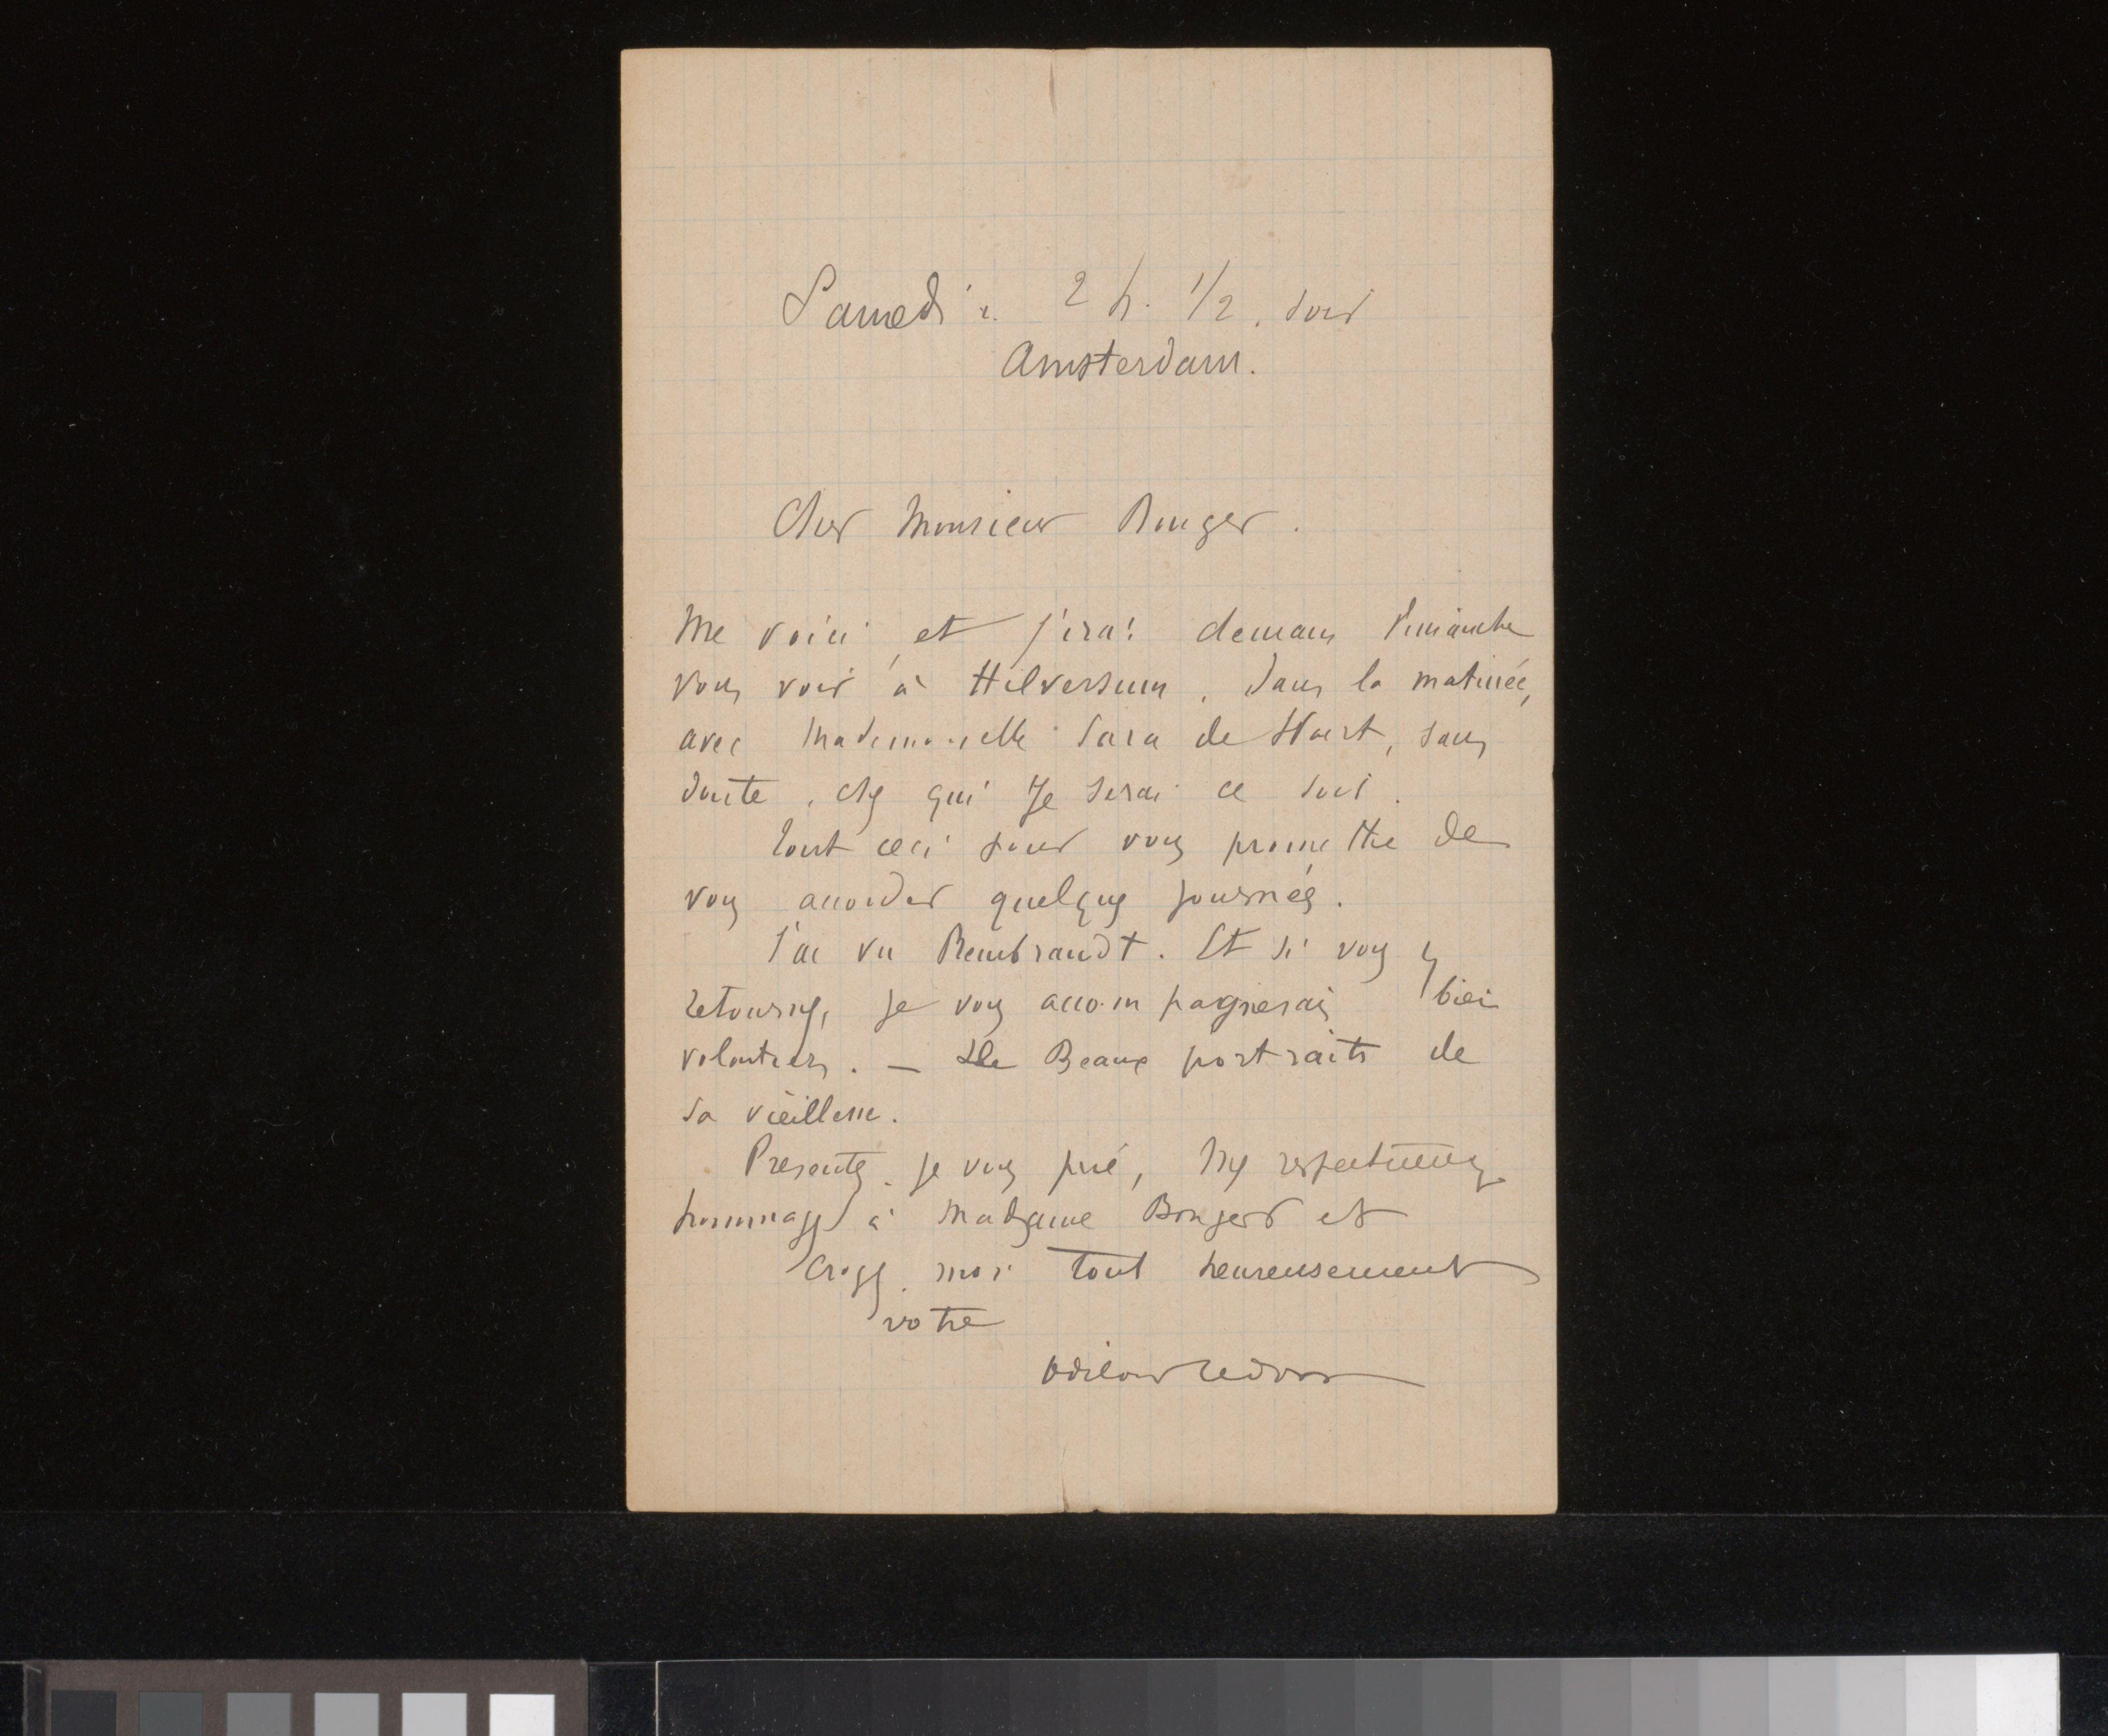 Samedi. 2 h. 1/2. soir
Amsterdam.
Cher Monsieur Bonger.
Me voici, et j'irai demain dimanche
vous voir à Hilversum, dans la matinée,
avec Mademoiselle Sara de Swart, sans
doute, chez qui je serai ce soir.
Tout ceci pour vous promettre de
vous accorder quelques journées.
J'ai vu Rembrandt. Et si vous y
retournez, je vous accompagnerais bien
volontiers. — De Beaux portraits de
sa vieillesse.
Presentez, je vous prié, mes respectueux
hommages à Madame Bonger et
croyez moi tout heureusement
votre
Odilon Redon